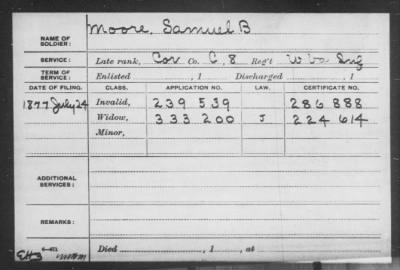 NAME OF SOLDIER: Moore, Samuel B
SERVICE: Late rank, Cor Co. C, 8 Reg't W Va Inf
TERM OF SERVICE: Enlisted , 1 Discharged , 1
DATE OF FILING. CLASS. APPLICATION NO. LAW. CERTIFICATE NO.
1877 July 24 Invalid, 239 539 286 888
Widow, 333 200 J 224 614
Minor,
ADDITIONAL SERVICES:
REMARKS:
Died , 1 , at